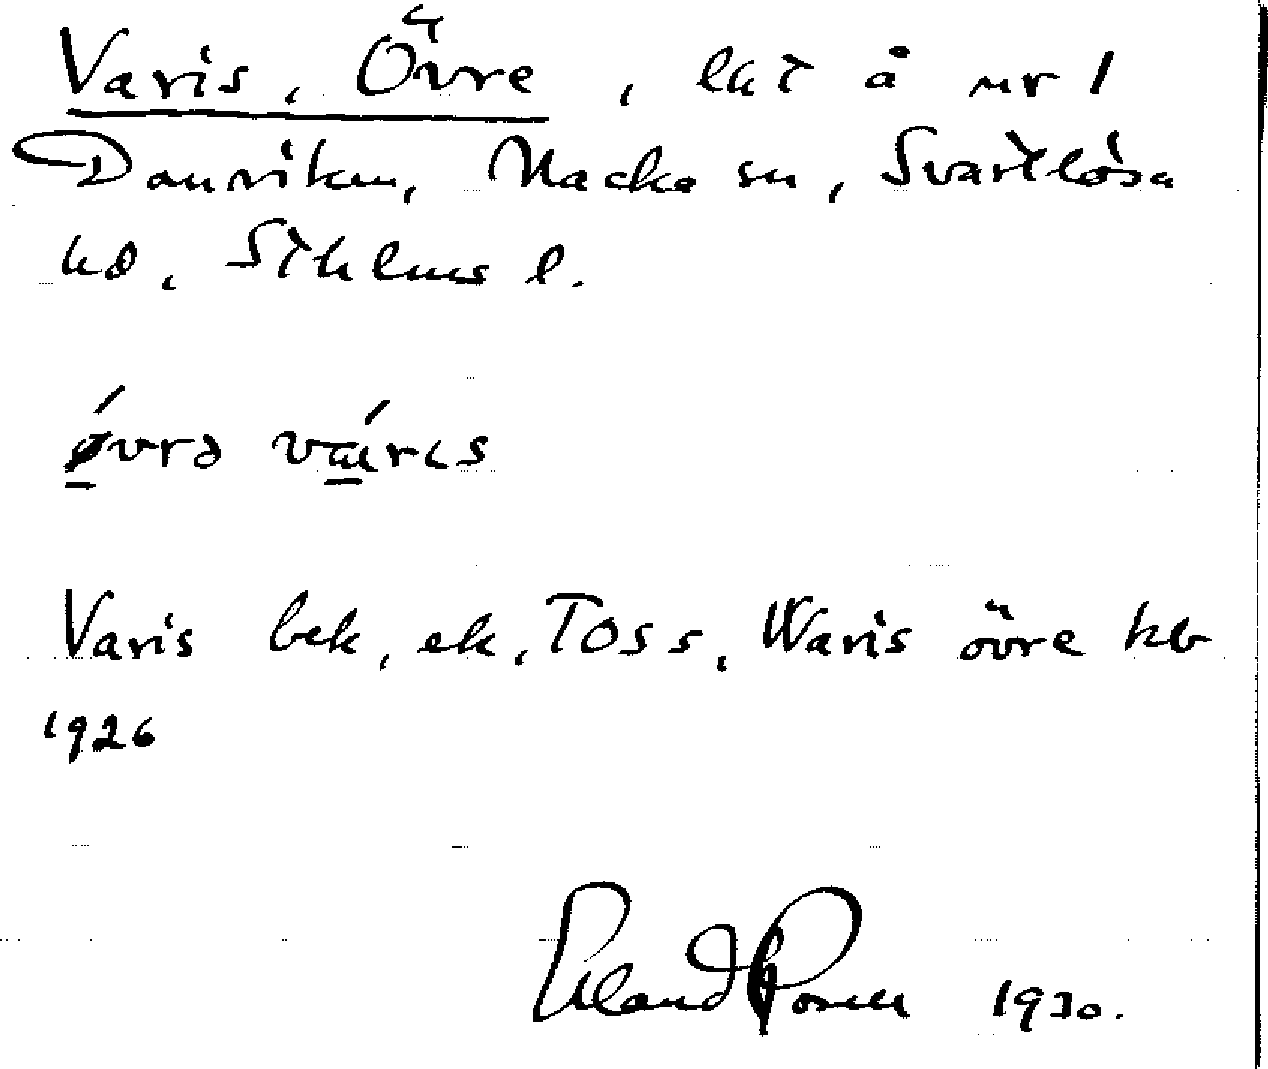 Varis, Övre, lät å nr 1
Danviken, Nacka sn, Svartlösa
hd, Sthlms l.
øvrə varıs
Varis bek, ek, Toss, Waris övre kb
1926
Erland Rosell 1930.